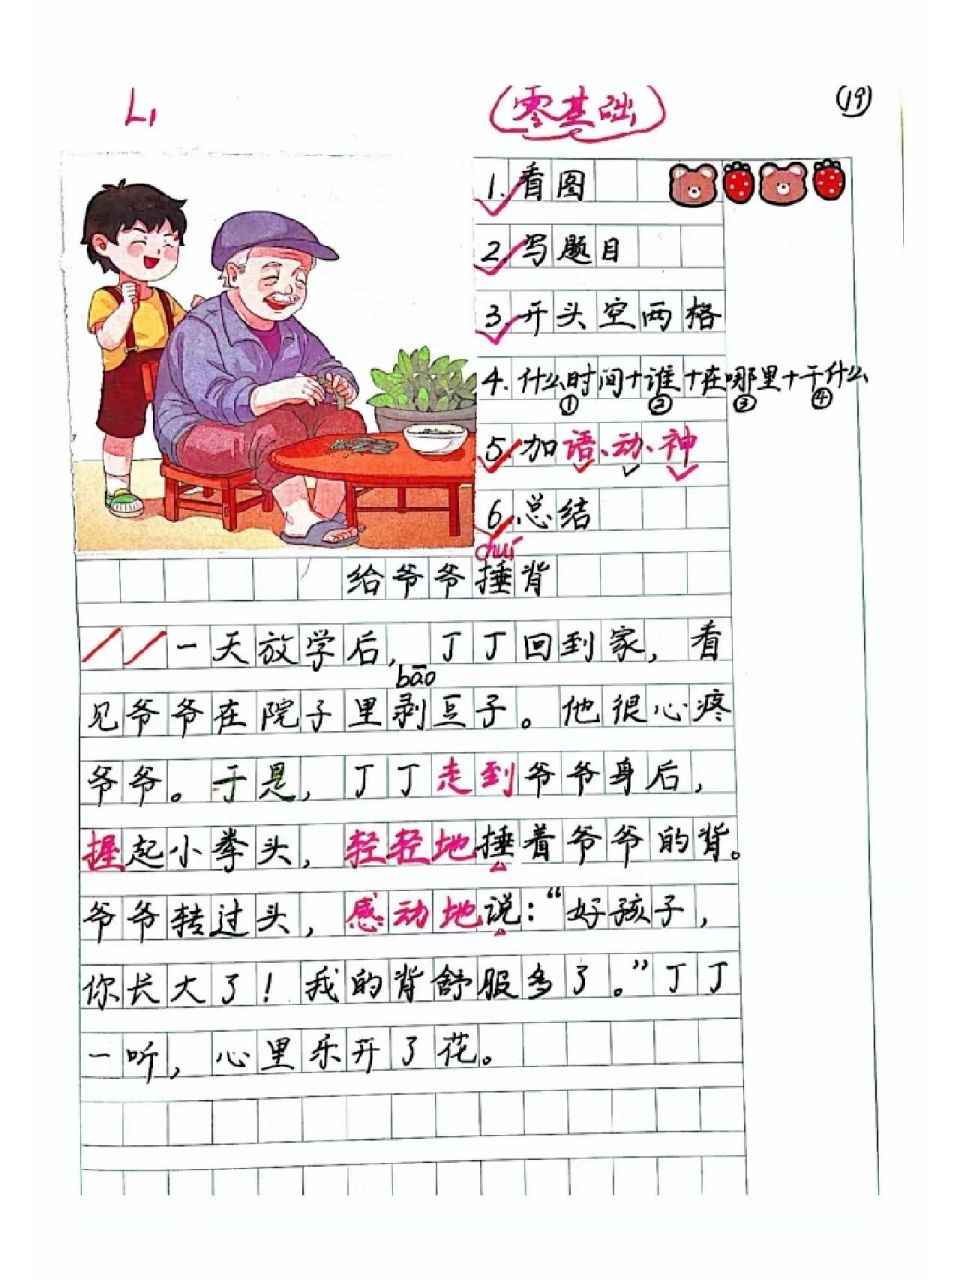 L1
(零基础)
19
1.看图
2.写题目
3.开头空两格
4.什么时间+谁+在哪里+干什么
① ② ③ ④
5.加语、动、神
6.总结
chuí
给爷爷捶背
一天放学后,丁丁回到家,看
bāo
见爷爷在院子里剥豆子。他很心疼
爷爷。于是,丁丁走到爷爷身后,
握起小拳头,轻轻地捶着爷爷的背。
爷爷转过头,感动地说:“好孩子,
你长大了!我的背舒服多了。”丁丁
一听,心里乐开了花。